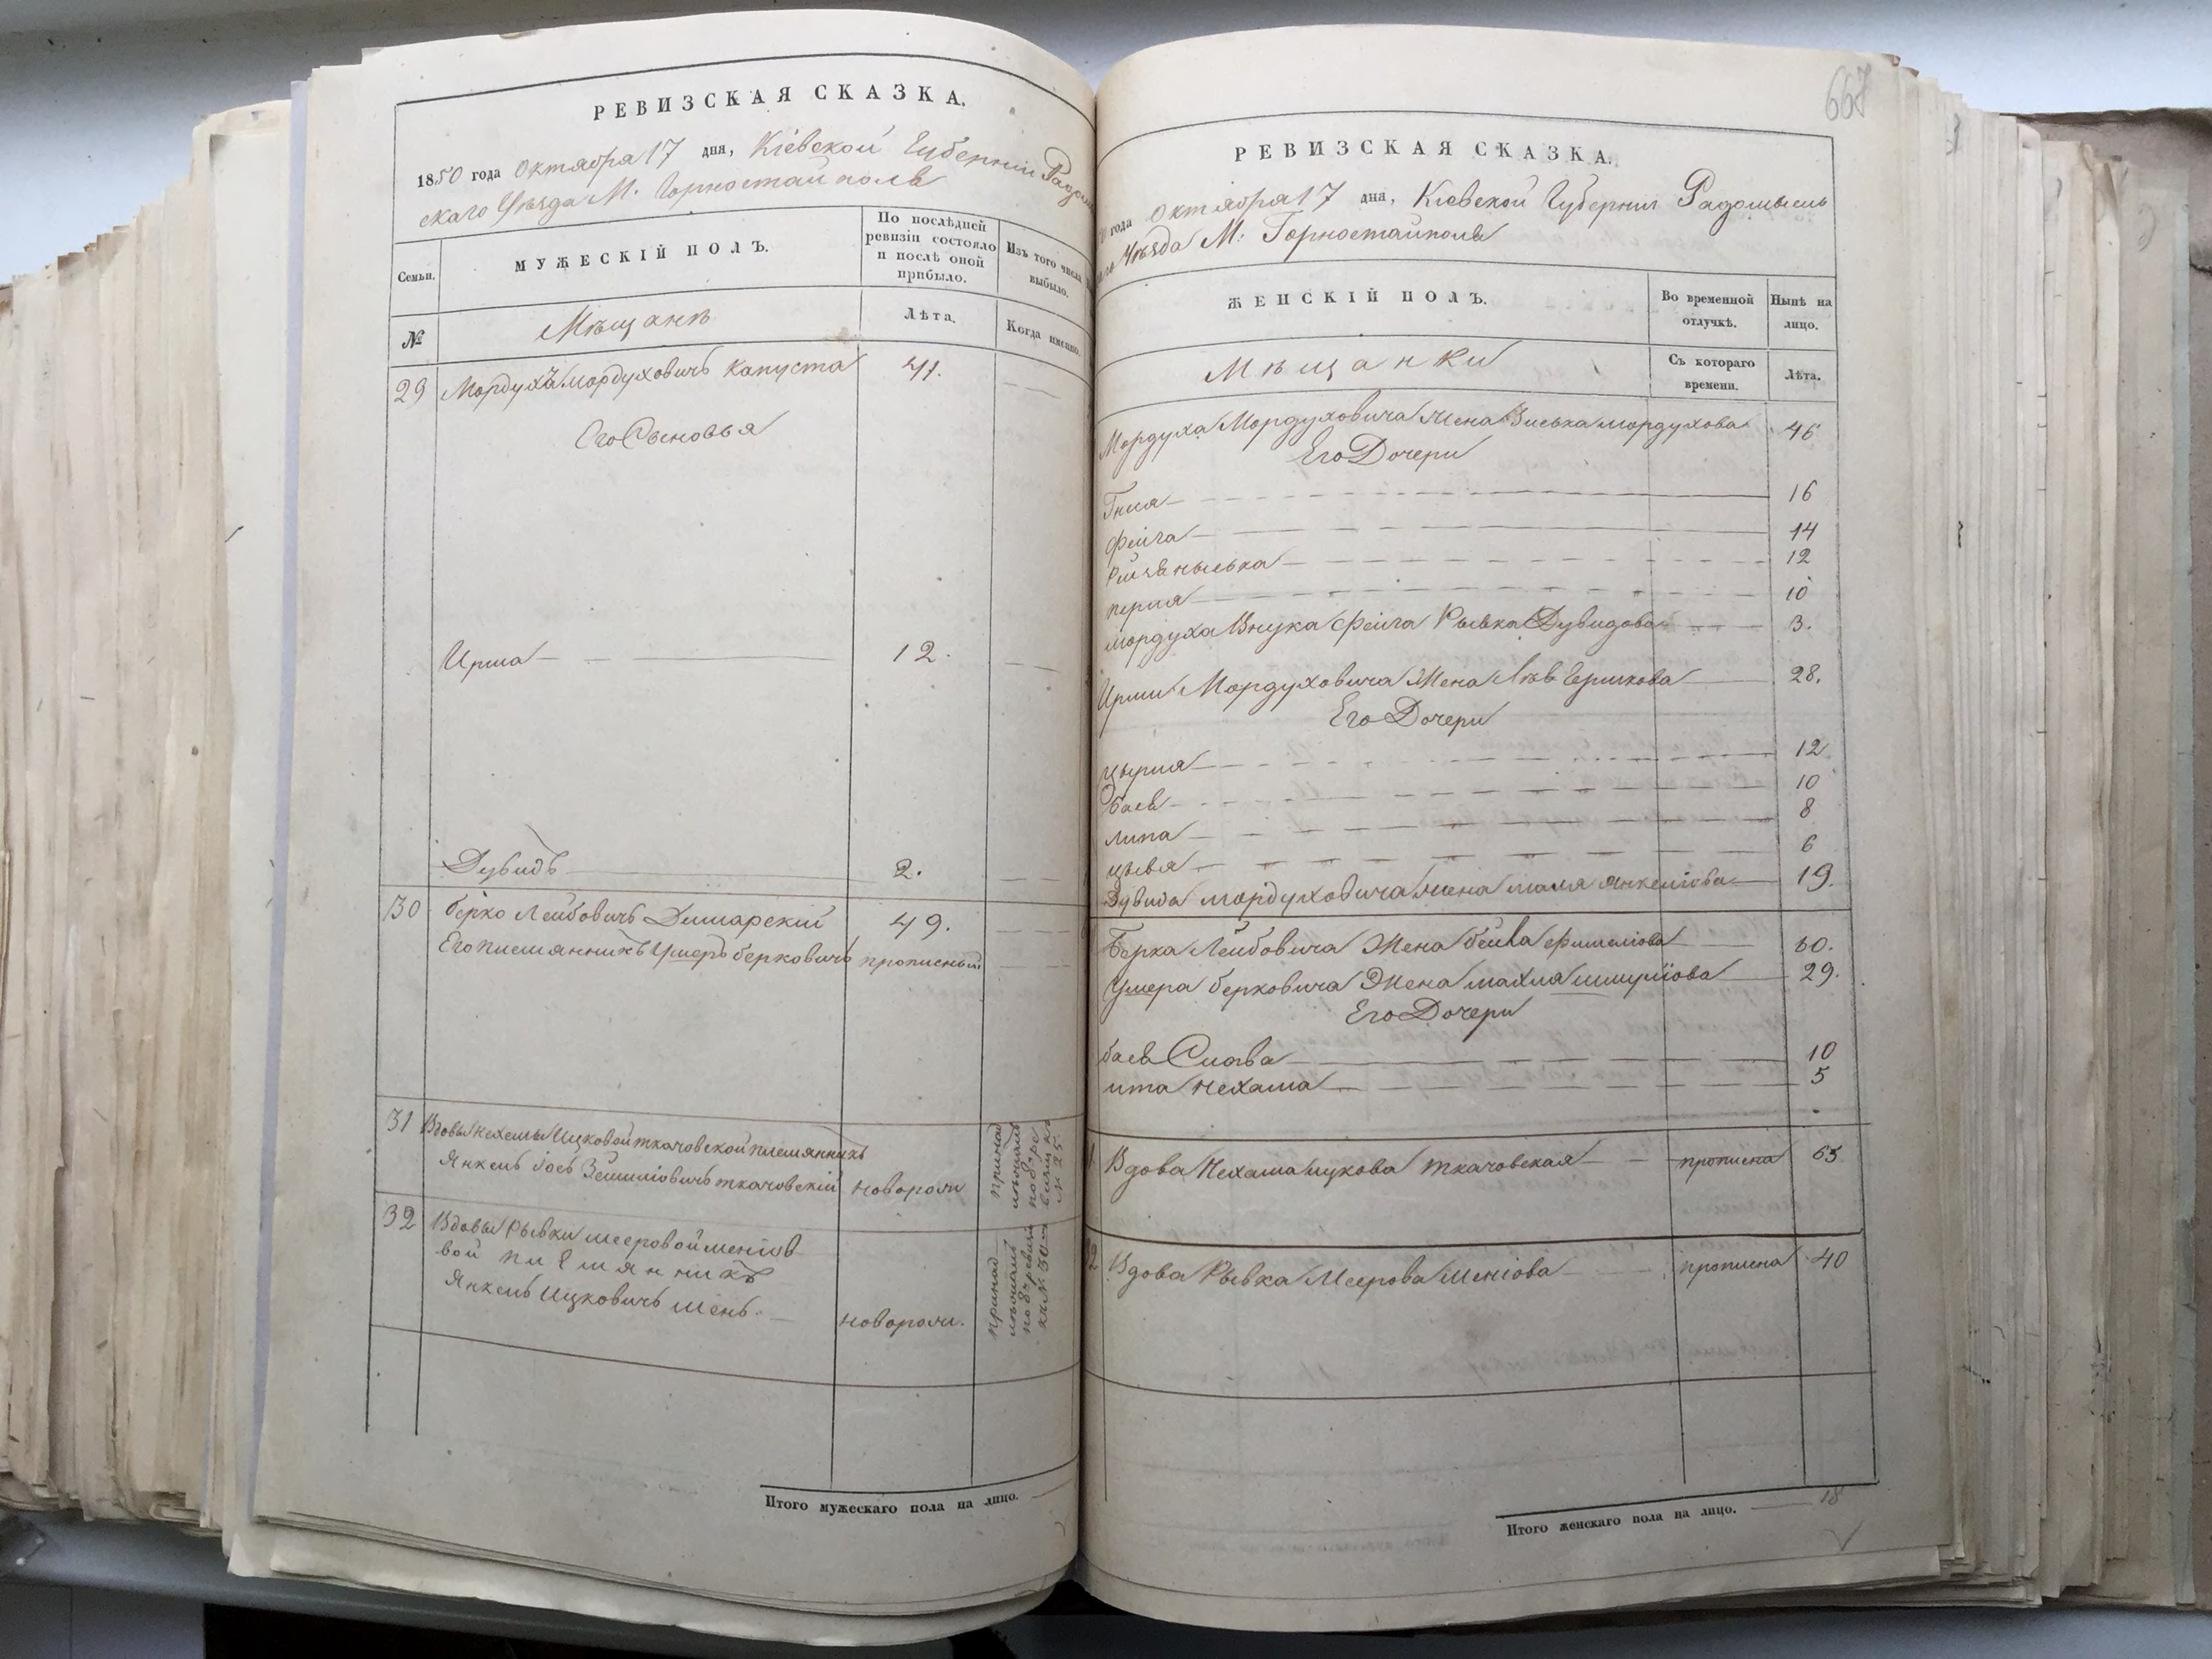 РЕВИЗСКАЯ СКАЗКА.
1850 года Октября 17 дня, Кіевской Губерніи Радомысль
скаго Уѣзда М. Горностайполя
Семьи.
МУЖЕСКІЙ ПОЛЪ.
По послѣдней ревизіи состояло и послѣ оной прибыло.
Изъ того числа выбыло.
№
Мѣщанъ
Лѣта.
Когда именно.
29 Мордухъ Мордуховичъ Капуста 41.
Его Сыновья
Ирша 12.
Дувидъ 2.
30 Берко Лейбовичъ Димарскій 49.
Его племянникъ Ушеръ Берковичъ прописный
31 Вдовы Нехамы Ицковой Ткачовской племянникъ
Янкель Іось Зейлиговичъ Ткачовскій новорож.
принад
лѣжащ
по 8 ре
визіи къ
№ 25
32 Вдовы Рывки Мееровой
вой племянникъ
Янкель Ицковичъ Шень новорож.
принад
по 8 ревизіи
къ № 30
Итого мужескаго пола на лицо.
667
РЕВИЗСКАЯ СКАЗКА.
0 года Октября 17 дня, Кіевской Губерніи Радомысль
Уѣзда М. Горностайполя
ЖЕНСКІЙ ПОЛЪ.
Во временной отлучкѣ.
Нынѣ на лицо.
Мѣщанки
Съ котораго времени.
Лѣта.
Мордуха Мордуховича Жена Зиська Мордухова 46
Его Дочери
Гнися 16
Фейга 14
12
Перля 10
Мордуха Внука Фейга Рывка Дувидова 3.
Ирши Мордуховича Жена Лѣя Гершкова 28.
Его Дочери
Цырля 12
Бася 10
Липа 8
Цывья 6
Дувида Мордуховича Жена Маля Янкелюва 19.
Берка Лейбовича Жена Бейла Фишелюва 50.
Ушера Берковича Жена Махля Шмулюва 29.
Его Дочери
Бася Слова 10
Ита Нехама 5
1 Вдова Нехама Ицкова Ткачовская прописна 65
32 Вдова Рывка Меерова прописна 40
Итого женскаго пола на лицо. 18